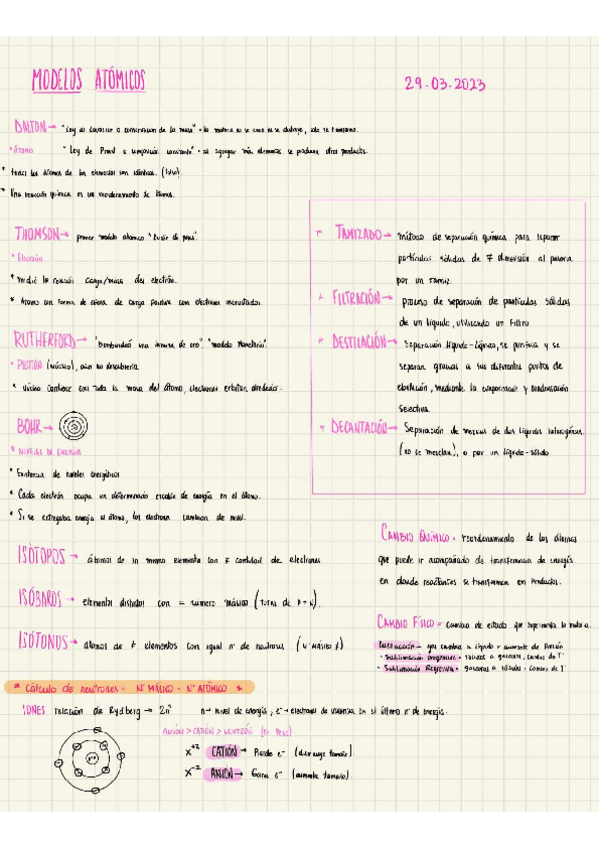 MODELOS ATÓMICOS
29.03.2023
DALTON → "Ley de Lavoisier o conservación de la masa" - la materia no se crea ni se destruye, solo se transforma.
* ÁTOMO "Ley de Proust o composición constante" - al agregar más elementos se producen otros productos.
* Todos los átomos de los elementos son idénticos. (falso).
* Una reacción química es un reordenamiento de átomos.
THOMSON → primer modelo atómico "Budín de pasas".
* Electrón
* Midió la relación carga/masa del electrón.
* Átomo con forma de esfera de carga positiva con electrones incrustados.
RUTHERFORD → "bombardeó una lámina de oro". "modelo planetario".
* PROTÓN (núcleo), aún no descubierto.
* Núcleo contiene casi toda la masa del átomo, electrones orbitan alrededor.
BOHR →
* NIVELES DE ENERGÍA
* Existencia de niveles energéticos
* Cada electrón ocupa un determinado nivel de energía en el átomo.
* Si se entregaba energía al átomo, los electrones cambian de nivel.
ISÓTOPOS → átomos de un mismo elemento con ≠ cantidad de electrones
ISÓBAROS → elementos distintos con = número másico (TOTAL DE P + N).
ISÓTONOS → átomos de ≠ elementos con igual nº de neutrones (Nº MÁSICO ≠)
* Cálculo de neutrones - Nº MÁSICO - Nº ATÓMICO *
IONES relación de Rydberg → 2n² n → nivel de energía, e⁻ → electrones de valencia en el último nº de energía.
ANIÓN > CATIÓN > NEUTRÓN (en peso)
X⁺² CATIÓN → Pierde e⁻ (disminuye tamaño)
X⁻² ANIÓN → Gana e⁻ (aumenta tamaño).
TAMIZADO → método de separación química para separar
partículas sólidas de ≠ dimensión al pasarla
por un tamiz.
FILTRACIÓN → proceso de separación de partículas sólidas
de un líquido, utilizando un filtro
DESTILACIÓN → Separación líquido-líquido, se purifica y se
separan gracias a sus diferentes puntos de
ebullición, mediante la evaporización y condensación
selectiva.
DECANTACIÓN → Separación de mezclas de dos líquidos heterogéneos.
(no se mezclan), o por un líquido-sólido
CAMBIO QUÍMICO - reordenamiento de los átomos
que puede ir acompañado de transferencia de energía
en donde reactantes se transforman en productos.
CAMBIO FÍSICO - cambio de estado que experimenta la materia.
- Sublimación progresiva - sólidos a gaseosos, cambio de Tº
- Sublimación Regresiva - gaseosos a sólidos - cambio de Tº